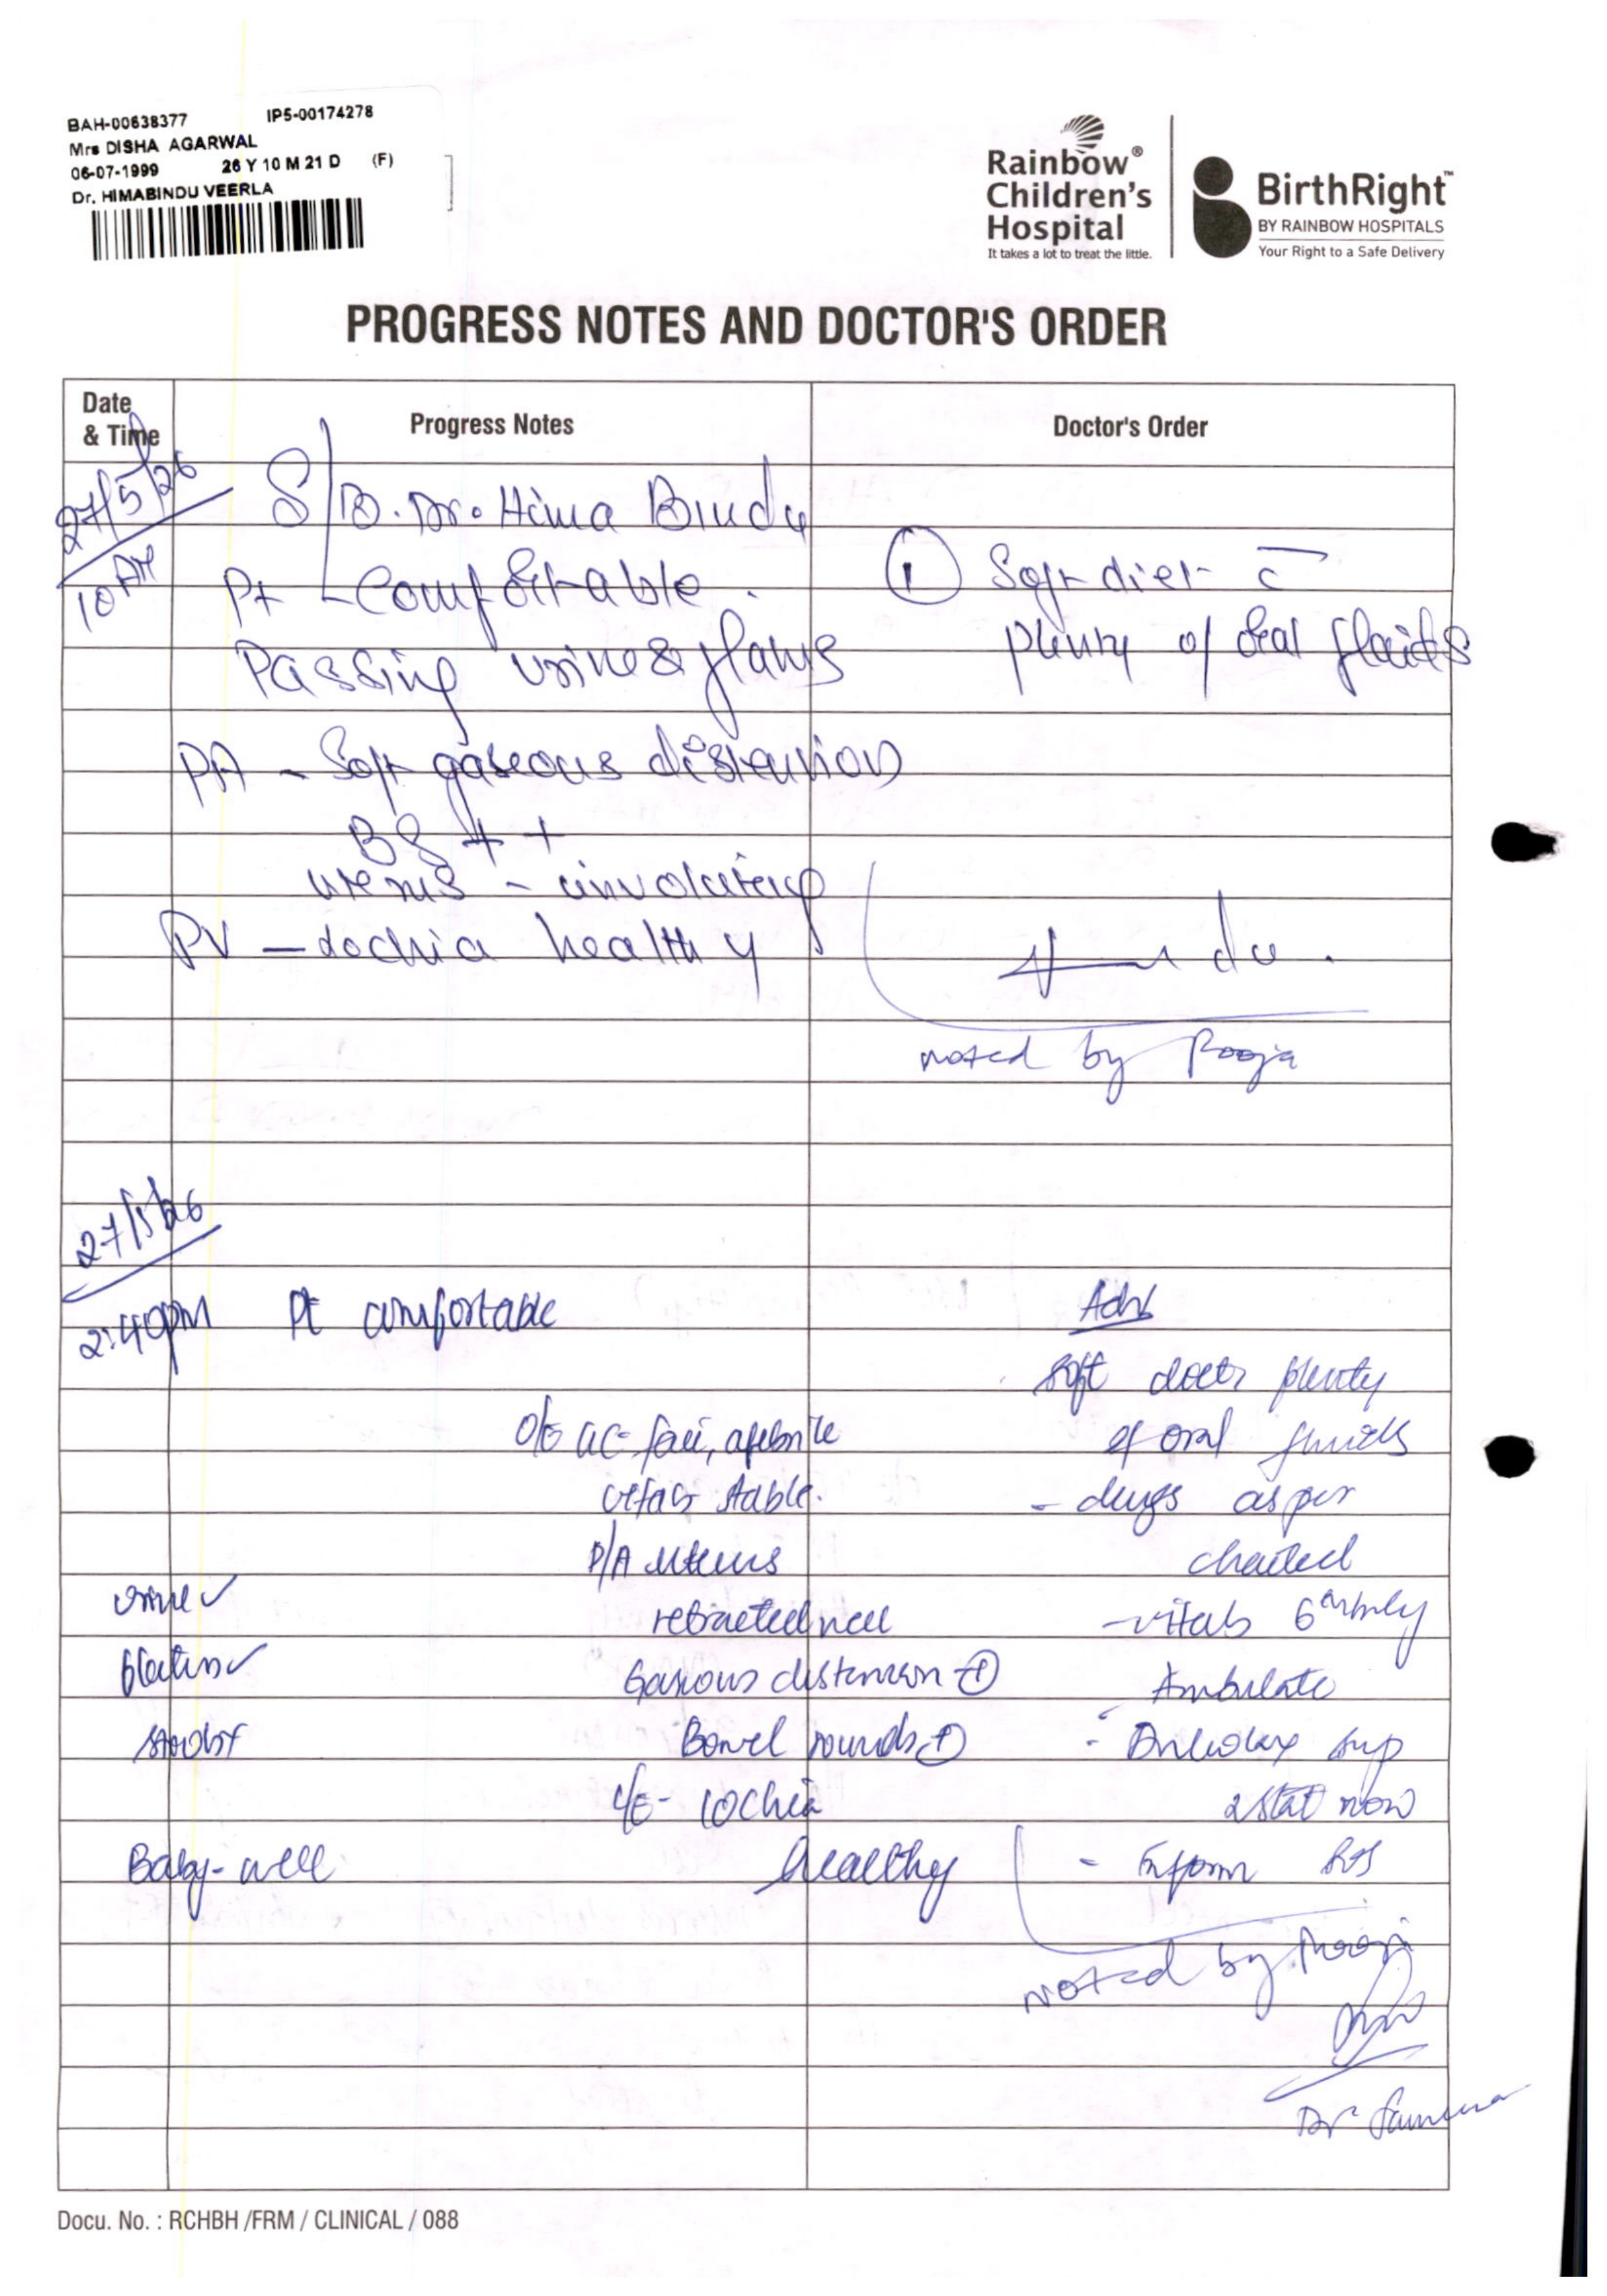 BAH-00638377 IP5-00174278
Mrs DISHA AGARWAL
06-07-1999 26 Y 10 M 21 D (F)
Dr. HIMABINDU VEERLA
Rainbow®
Children's
Hospital
It takes a lot to treat the little.
BirthRight™
BY RAINBOW HOSPITALS
Your Right to a Safe Delivery
PROGRESS NOTES AND DOCTOR'S ORDER
Date & Time
Progress Notes
Doctor's Order
27/5/26
10 AM
S/B. Dr. Hima Bindu
Pt - Comfortable.
Passing urine & flatus
PA - Soft gaseous distension
BS ++
uterus - involuting
PV - Lochia healthy
① Soft diet c̄
plenty of oral fluids
noted by Pooja
27/5/26
2:40pm
Pt comfortable
O/E GC-fair, afebrile
vitals stable.
P/A uterus
retracted well
Gaseous distension +
Bowel sounds +
L/E- lochia
healthy
urine ✓
flatus ✓
Baby-well
Adv
soft diet plenty
of oral fluids
- drugs as per
charted
- vitals 6th hrly
Ambulate
- Dulcolax sup
2 stat now
- Inform SOS
noted by Pooja
Dr
Docu. No. : RCHBH /FRM / CLINICAL / 088